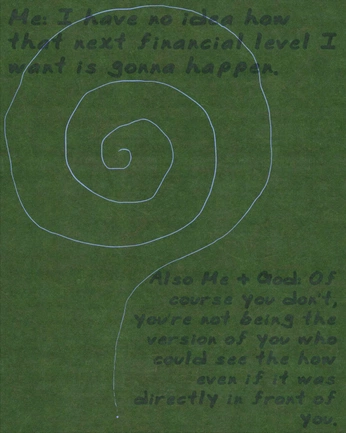 Me: I have no idea how
that next financial level I
want is gonna happen.
Also Me + God: Of
course you don't,
you're not being the
version of you who
could see the how
even if it was
directly in front of
you.